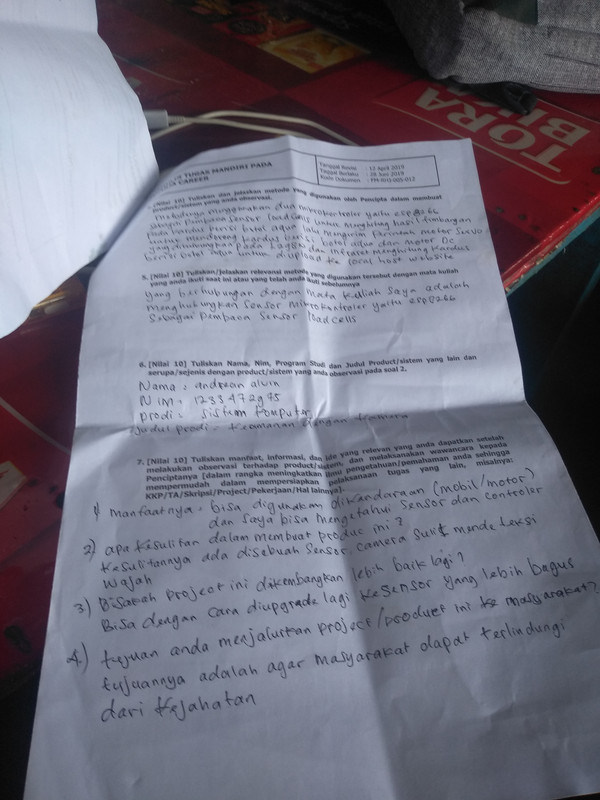 TORA
TUGAS MANDIRI PADA
CAREER
Tanggal Revisi : 12 April 2019
Tanggal Berlaku : 28 Juni 2019
Kode Dokumen : FM-RHJ-005-012
[Nilai 10] Tuliskan dan jelaskan metode yang digunakan oleh Pencipta dalam membuat
product/sistem yang anda observasi.
Metodenya menggunakan dua mikrokontroler yaitu esp8266
sebagai Pembaca Sensor loadcell untuk menghitung hasil timbangan
Pada kardus Perisi botol aqua lalu mengirim Perintah motor Servo
untuk mendorong kardus berisi botol aqua dan motor DC
yang disambungkan pada dan infrared menghitung Kardus
berisi botol aqua untuk diupload ke local host website
5. [Nilai 10] Tuliskan/jelaskan relevansi metode yang digunakan tersebut dengan mata kuliah
yang anda ikuti saat ini atau yang telah anda ikuti sebelumnya
yang berhubungan dengan mata kuliah saya adalah
menghubungkan Sensor mikrokontroler yaitu esp8266
Sebagai Pembaca Sensor loadcells
6. [Nilai 10] Tuliskan Nama, Nim, Program Studi dan Judul Product/sistem yang lain dan
serupa/sejenis dengan product/sistem yang anda observasi pada soal 2.
Nama : andrean alvin
NIM : 1233472975
Prodi : Sistem Komputer
Judul prodi : Keamanan dengan
7. [Nilai 10] Tuliskan manfaat, informasi, dan ide yang relevan yang anda dapatkan setelah
melakukan observasi terhadap product/sistem, dan melaksanakan wawancara kepada
Penciptanya (dalam rangka meningkatkan ilmu pengetahuan/pemahaman anda sehingga
mempermudah dalam mempersiapkan pelaksanaan tugas yang lain, misalnya:
KKP/TA/Skripsi/Project/Pekerjaan/Hal lainnya).
1) manfaatnya : bisa digunakan dikandaraan (mobil/motor)
dan saya bisa mengetahui sensor dan controler
2) apa kesulitan dalam membuat produc ini?
Kesulitannya ada disebuah sensor, camera sulit mendeteksi
wajah
3) Bisakah project ini dikembangkan lebih baik lagi?
Bisa dengan cara diupgrade lagi kesensor yang lebih bagus
4) tujuan anda menjalurkan project/product ini ke masyarakat?
tujuannya adalah agar masyarakat dapat terlindungi
dari Kejahatan